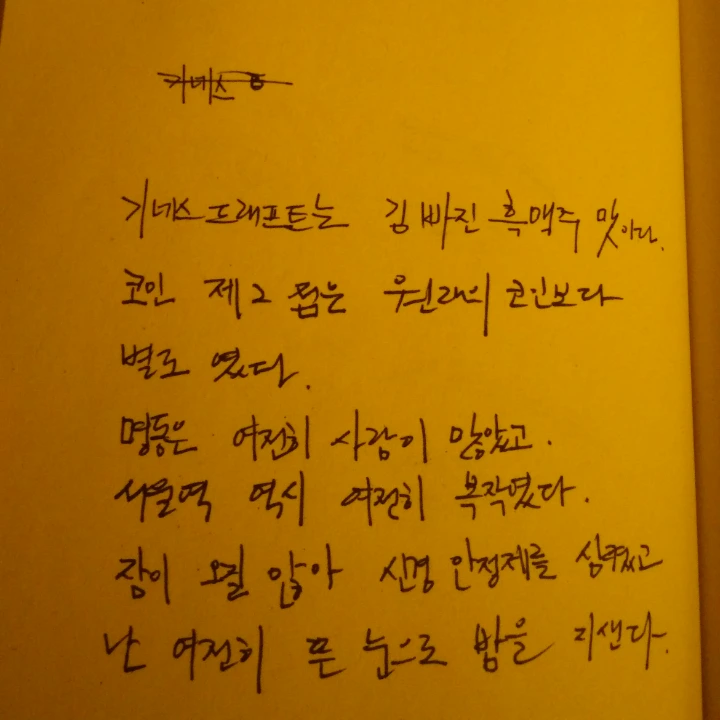 기네스
기네스 드래프트는 김 빠진 흑맥주 맛이다.
코인 제2 펍은 원래의 코인보다
별로 였다.
명동은 여전히 사람이 많았고.
서울역 역시 여전히 복작였다.
잠이 오질 않아 신경 안정제를 삼켰고
난 여전히 뜬 눈으로 밤을 지샌다.